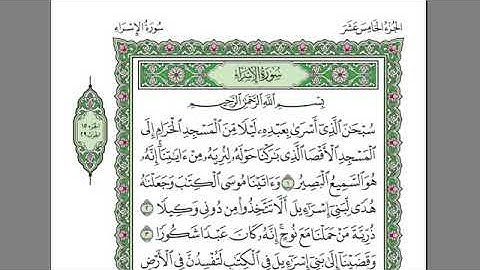 سُورَةُ الإِسْرَاء
الجُزْءُ الخَامِسَ عَشَرَ
سُورَةُ الإِسْرَاءِ
بِسْمِ ٱللَّهِ ٱلرَّحْمَٰنِ ٱلرَّحِيمِ
سُبْحَٰنَ ٱلَّذِىٓ أَسْرَىٰ بِعَبْدِهِۦ لَيْلًا مِّنَ ٱلْمَسْجِدِ ٱلْحَرَامِ إِلَى
ٱلْمَسْجِدِ ٱلْأَقْصَا ٱلَّذِى بَٰرَكْنَا حَوْلَهُۥ لِنُرِيَهُۥ مِنْ ءَايَٰتِنَآ إِنَّهُۥ
هُوَ ٱلسَّمِيعُ ٱلْبَصِيرُ ١ وَءَاتَيْنَا مُوسَى ٱلْكِتَٰبَ وَجَعَلْنَٰهُ
هُدًى لِّبَنِىٓ إِسْرَٰٓءِيلَ أَلَّا تَتَّخِذُوا۟ مِن دُونِى وَكِيلًا ٢
ذُرِّيَّةَ مَنْ حَمَلْنَا مَعَ نُوحٍ إِنَّهُۥ كَانَ عَبْدًا شَكُورًا ٣
وَقَضَيْنَآ إِلَىٰ بَنِىٓ إِسْرَٰٓءِيلَ فِى ٱلْكِتَٰبِ لَتُفْسِدُنَّ فِى ٱلْأَرْضِ